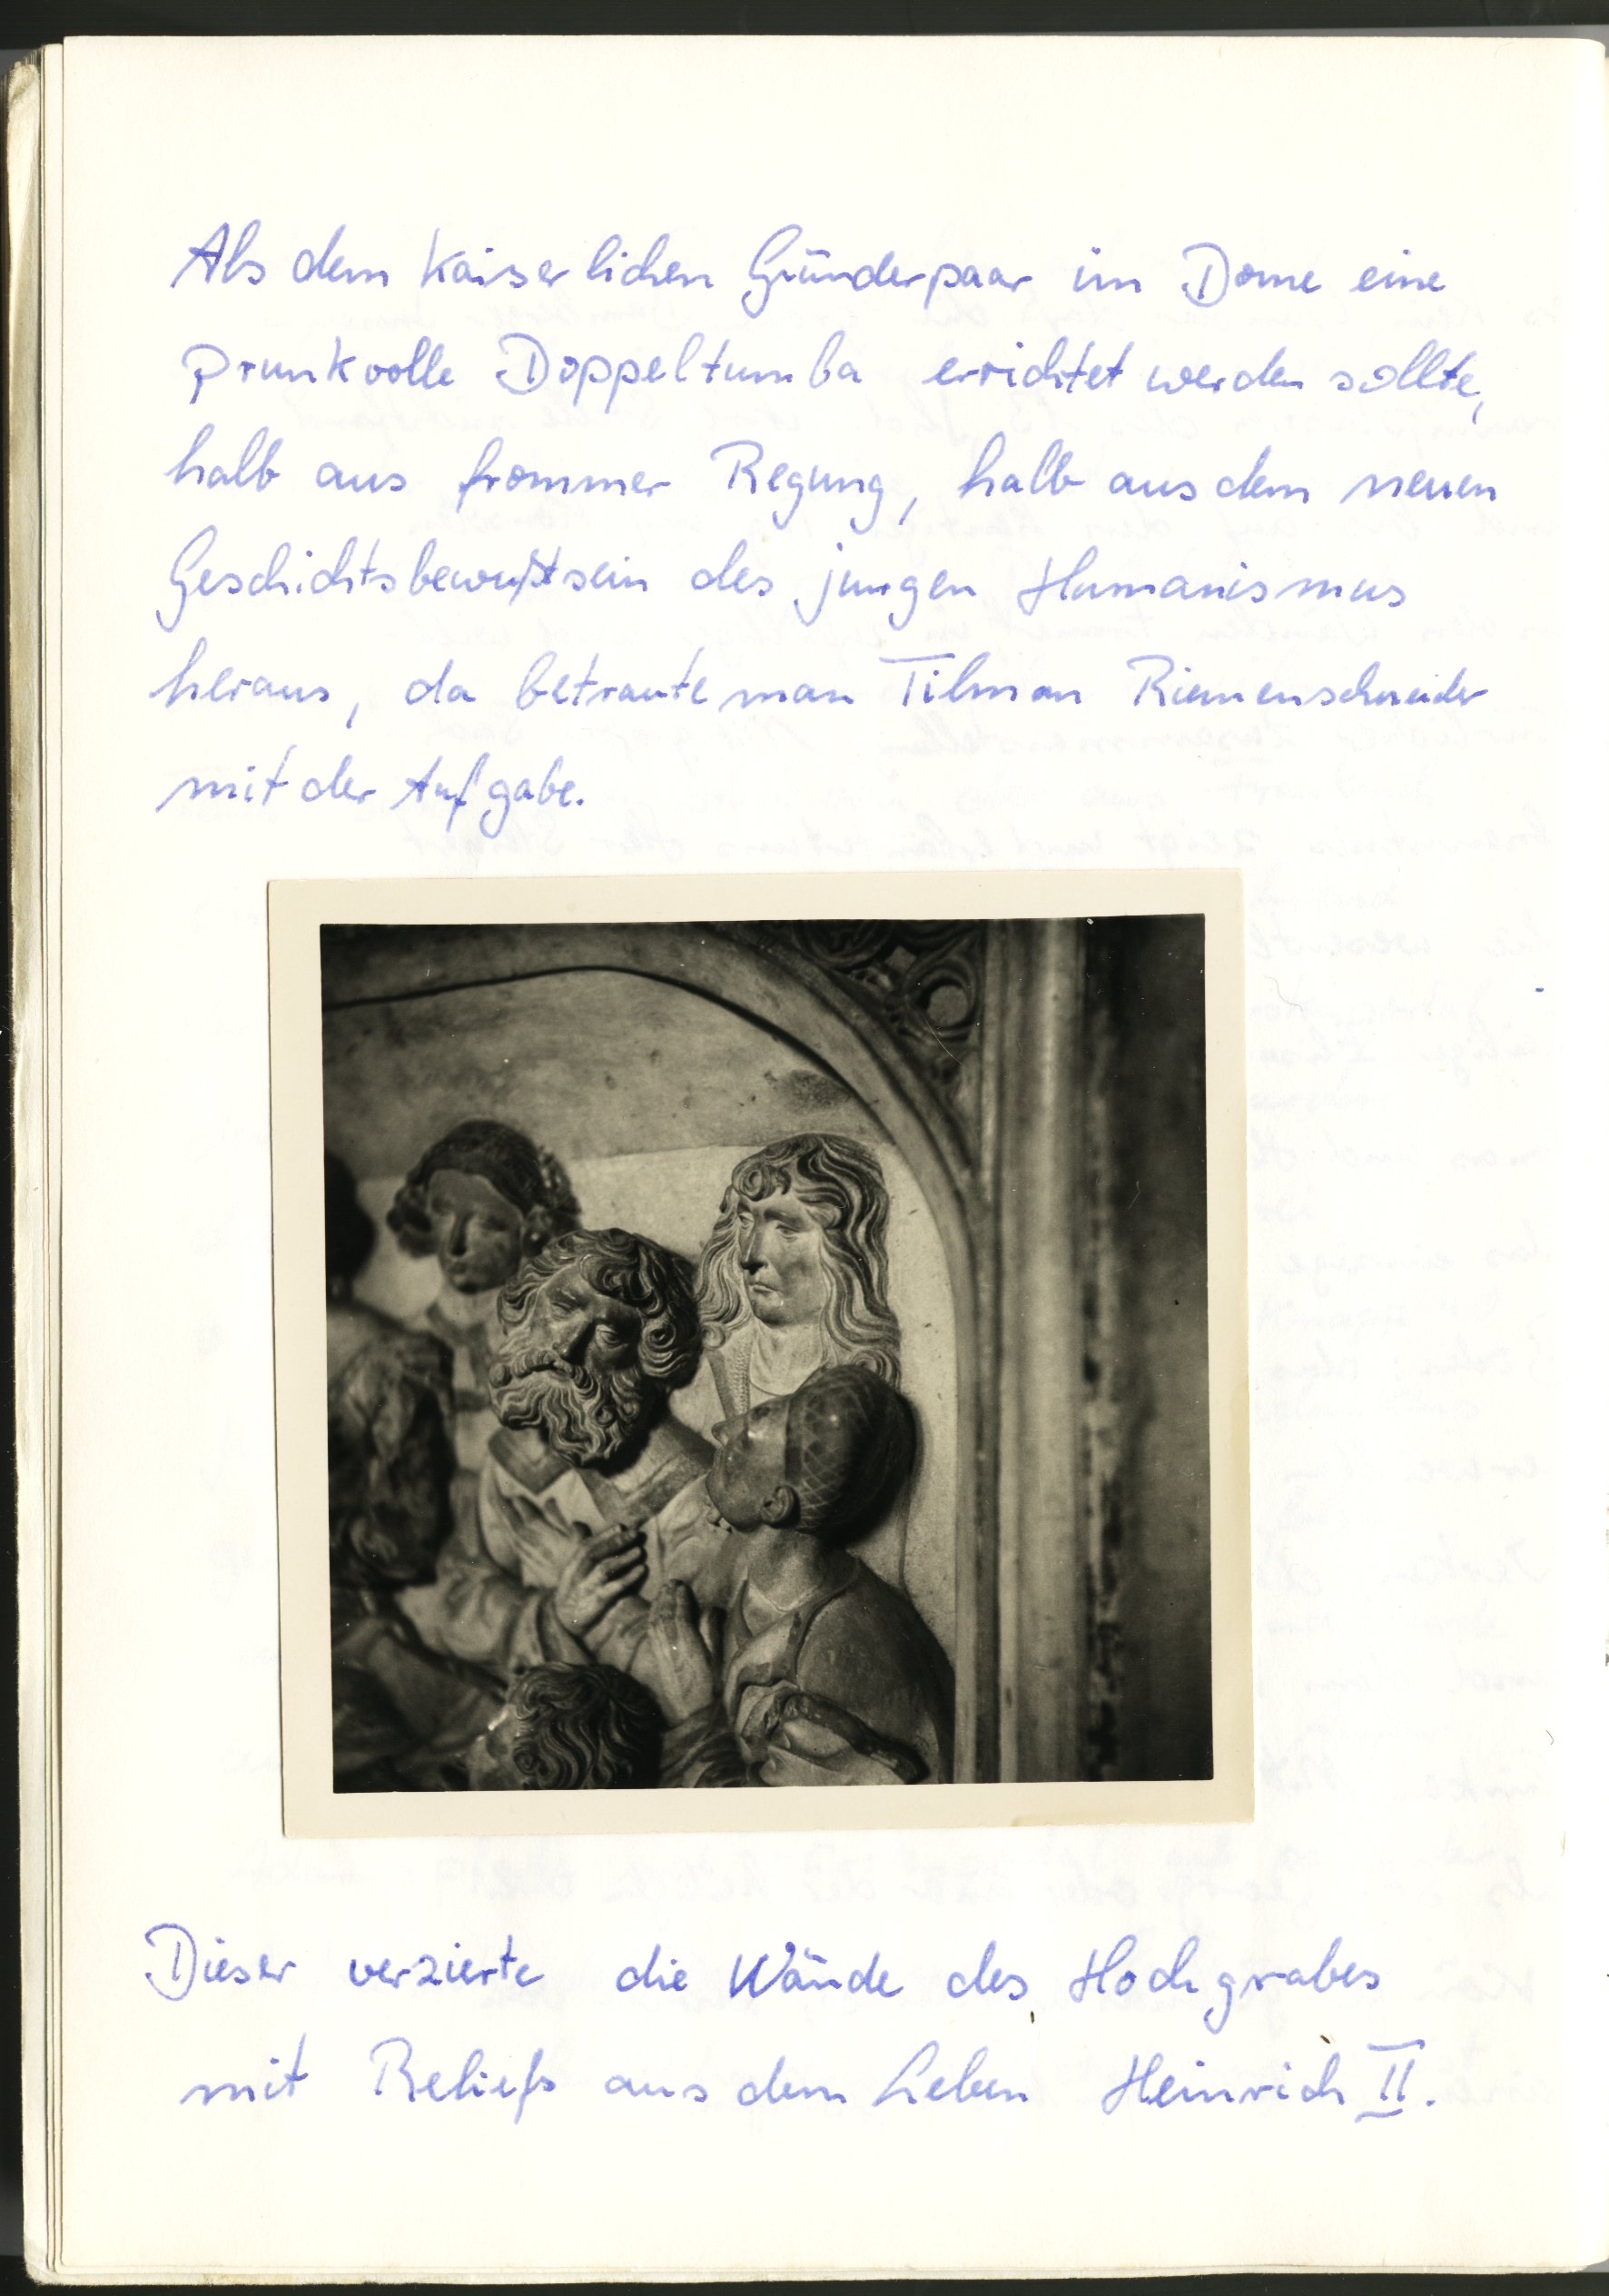 Als dem Kaiserlichen Gründerpaar im Dome eine
prunkvolle Doppeltumba errichtet werden sollte,
halb aus frommer Regung, halb aus dem neuen
Geschichtsbewußtsein des jungen Humanismus
heraus, da betraute man Tilman Riemenschneider
mit der Aufgabe.
Dieser verzierte die Wände des Hochgrabes
mit Reliefs aus dem Leben Heinrich II.